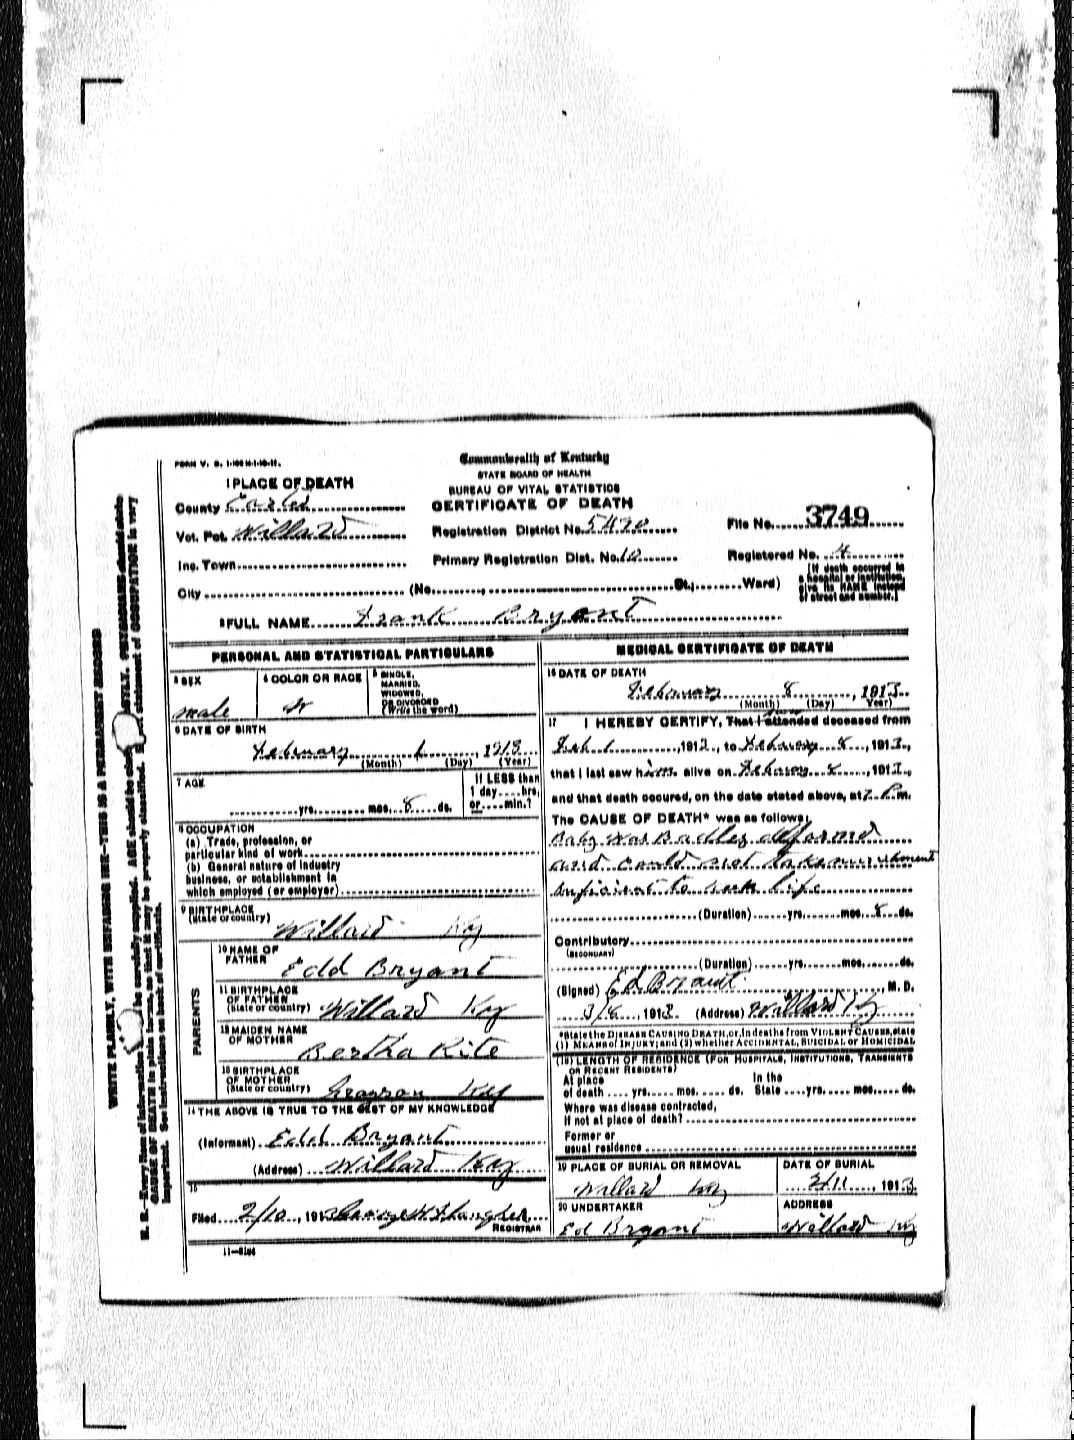 FORM V. S. 1-100 M-1-10-11.
Commonwealth of Kentucky
STATE BOARD OF HEALTH
BUREAU OF VITAL STATISTICS
CERTIFICATE OF DEATH
1 PLACE OF DEATH
County Carter
Vot. Pct. Willard
Inc. Town
City (No. , St.; Ward)
Registration District No. 5470
Primary Registration Dist. No. 10
File No. 3749
Registered No. 4
(If death occurred in
a hospital or institution,
give its NAME instead
of street and number.)
2 FULL NAME Frank Bryant
PERSONAL AND STATISTICAL PARTICULARS
3 SEX
male
4 COLOR OR RACE
W
5 SINGLE,
MARRIED,
WIDOWED,
OR DIVORCED
(Write the word)
6 DATE OF BIRTH
February 1, 1913
(Month) (Day) (Year)
7 AGE
yrs. mos. 8 ds.
If LESS than
1 day hrs.
or min.?
8 OCCUPATION
(a) Trade, profession, or
particular kind of work
(b) General nature of industry
business, or establishment in
which employed (or employer)
9 BIRTHPLACE
(State or country) Willard Ky
PARENTS
10 NAME OF
FATHER Edd Bryant
11 BIRTHPLACE
OF FATHER
(State or country) Willard Ky
12 MAIDEN NAME
OF MOTHER Bertha Kite
13 BIRTHPLACE
OF MOTHER
(State or country) Grayson Ky
14 THE ABOVE IS TRUE TO THE BEST OF MY KNOWLEDGE
(Informant) Edd Bryant
(Address) Willard Ky
15
Filed 2/10, 1913
REGISTRAR
11—3184
MEDICAL CERTIFICATE OF DEATH
16 DATE OF DEATH
February 8, 1913
(Month) (Day) (Year)
17 I HEREBY CERTIFY, That I attended deceased from
Feb 1, 1913, to February 8, 1913,
that I last saw him alive on February 8, 1913,
and that death occured, on the date stated above, at 7 P.m.
The CAUSE OF DEATH* was as follows:
Baby Was Badley deformed
and could not take nurishment
suficient to life
(Duration) yrs. mos. 8 ds.
Contributory
(SECONDARY)
(Duration) yrs. mos. ds.
(Signed) Ed Bryant, M. D.
3/8, 1913 (Address) Willard Ky
*State the DISEASE CAUSING DEATH, or, in deaths from VIOLENT CAUSES, state
(1) MEANS of INJURY; and (2) whether ACCIDENTAL, SUICIDAL or HOMICIDAL
(18) LENGTH OF RESIDENCE (FOR HOSPITALS, INSTITUTIONS, TRANSIENTS
OR RECENT RESIDENTS)
At place In the
of death yrs. mos. ds. State yrs. mos. ds.
Where was disease contracted,
if not at place of death?
Former or
usual residence
19 PLACE OF BURIAL OR REMOVAL
Willard Ky
DATE OF BURIAL
2/11, 1913
20 UNDERTAKER
Ed Bryant
ADDRESS
Willard Ky
WRITE PLAINLY, WITH UNFADING INK—THIS IS A PERMANENT RECORD
N. B.—Every item of information should be carefully supplied. AGE should be stated EXACTLY. PHYSICIANS should state
CAUSE OF DEATH in plain terms, so that it may be properly classified. Exact statement of OCCUPATION is very
important. See instructions on back of certificate.